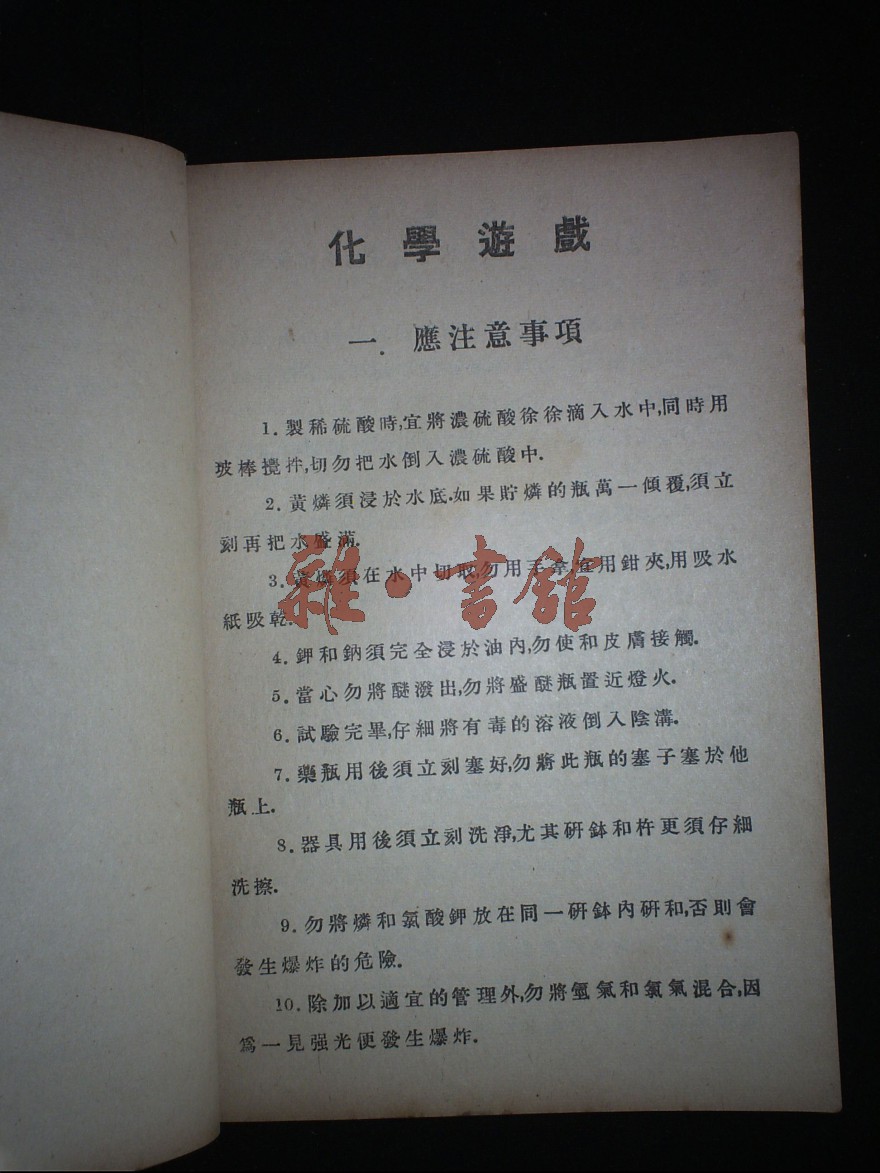 化學遊戲
一. 應注意事項
1. 製稀硫酸時,宜將濃硫酸徐徐滴入水中,同時用
玻棒攪拌,切勿把水倒入濃硫酸中.
2. 黃燐須浸於水底.如果貯燐的瓶萬一傾覆,須立
刻再把水盛滿.
3. 黃燐須在水中切取,勿用手拿,宜用鉗夾,用吸水
紙吸乾.
雜·書館
4. 鉀和鈉須完全浸於油內,勿使和皮膚接觸.
5. 當心勿將醚潑出,勿將盛醚瓶置近燈火.
6. 試驗完畢,仔細將有毒的溶液倒入陰溝.
7. 藥瓶用後須立刻塞好,勿將此瓶的塞子塞於他
瓶上.
8. 器具用後須立刻洗淨,尤其研鉢和杵更須仔細
洗擦.
9. 勿將燐和氯酸鉀放在同一研鉢內研和,否則會
發生爆炸的危險.
10. 除加以適宜的管理外,勿將氫氣和氯氣混合,因
爲一見强光便發生爆炸.